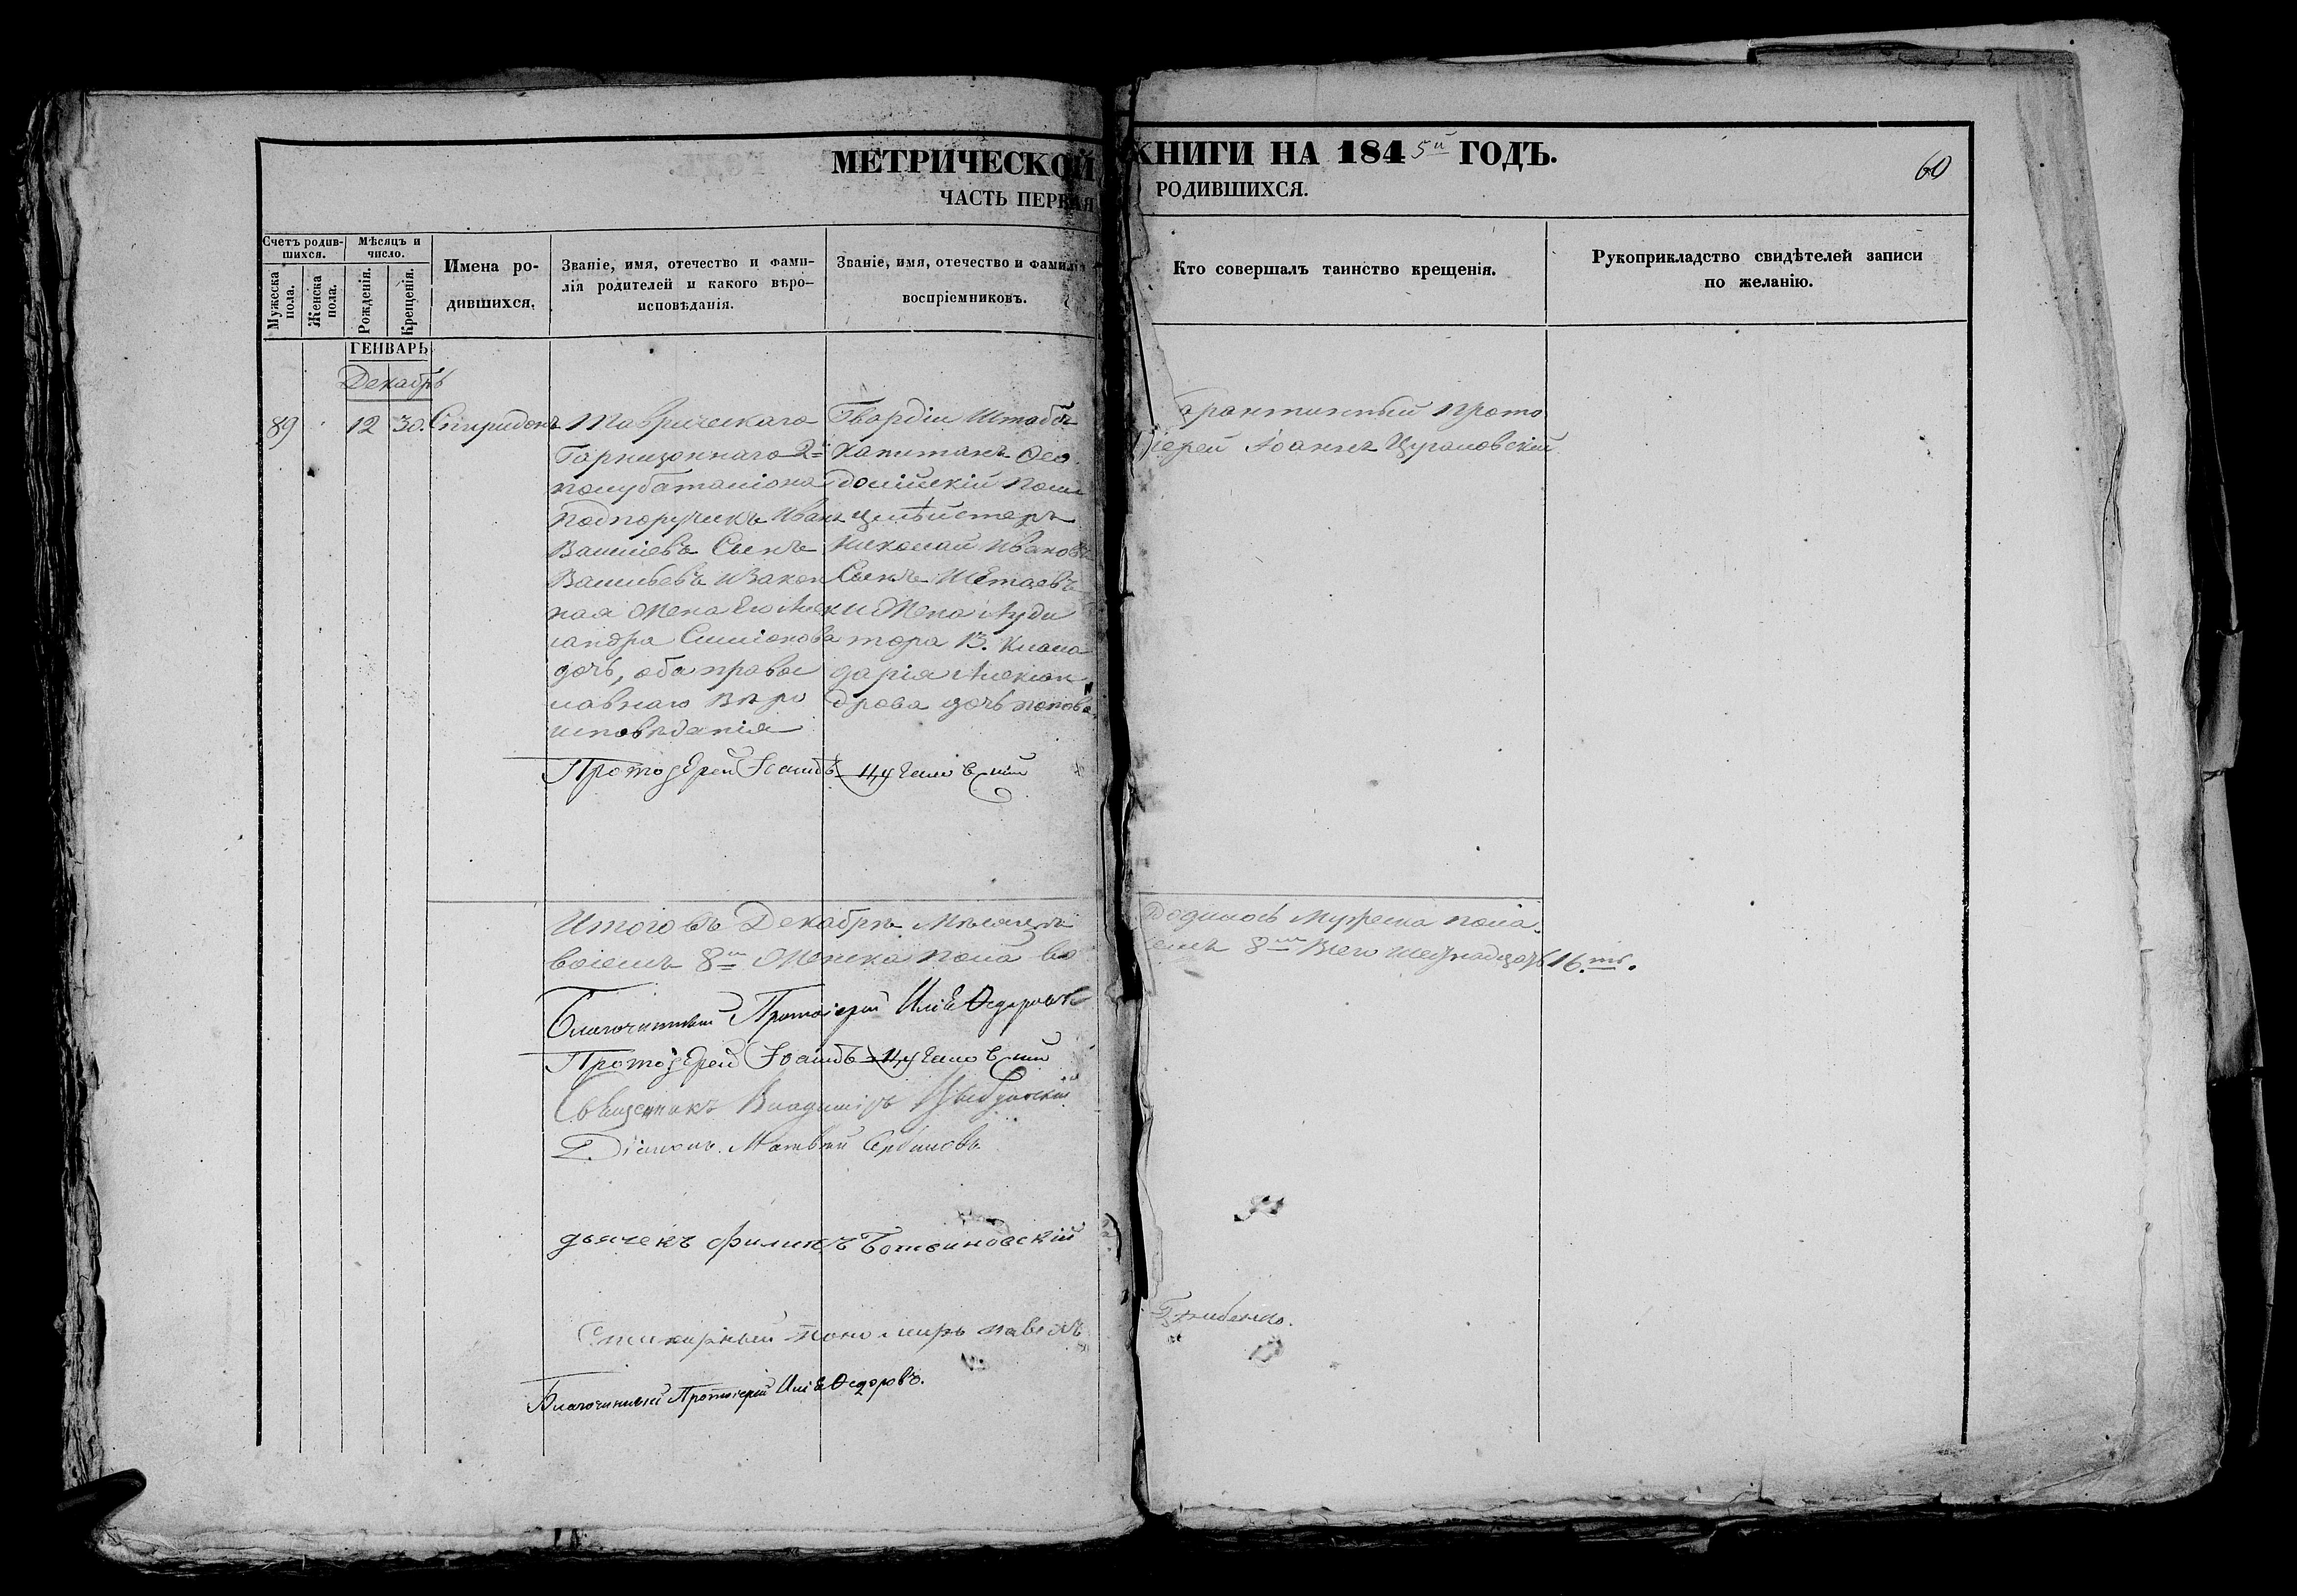 МЕТРИЧЕСКОЙ КНИГИ НА 1845й ГОДЪ.
60
ЧАСТЬ ПЕРВАЯ РОДИВШИХСЯ.
Счетъ родив-
шихся.
Мужеска пола.
Женска пола.
Мѣсяцъ и
число.
Рожденія.
Крещенія.
Имена ро-
дившихся.
Званіе, имя, отечество и фами-
лія родителей и какого вѣро-
исповѣданія.
Званіе, имя, отечество и фамилія
воспріемниковъ.
Кто совершалъ таинство крещенія.
Рукоприкладство свидѣтелей записи
по желанію.
ГЕНВАРЬ
Декабрь
89
12
30.
Спиридонъ
Таврическаго
Гарнизоннаго 2го
полубаталіона
Подпоручикъ Иванъ
Васильевъ Сынъ
Васильевъ и Закон
ная Жена Его Алек
сандра Симіонова
дочь, оба правос
лавнаго Вѣро
исповѣданія
Гвардіи Штабсъ
Капитанъ Ѳео
досійскій Поли
цмѣйстеръ
Николай Ивановъ
Сынъ
и Жена Ауди
тора 13. Класа
Дарія Алексан
дрова дочь Попова
Карантинный Прото
іерей Іоаннъ Цугаловскій
Протоіерей Іоаннъ Цугаловскій
Итого въ Декабрѣ Мѣсяцѣ Родилось Мужеска пола
восемь 8м Женска пола восемь 8м Всего шестнадцать 16.ть.
Благочинный Протоіерей Илія Ѳедоровъ
Протоіерей Іоаннъ Цугаловскій
Священникъ Владиміръ
Діаконъ Матвѣй Сербиновъ
дьячекъ Филипъ Ботвиновскій
Стихарный пономаръ Павелъ
Благочинный Протоіерей Илія Ѳедоровъ.